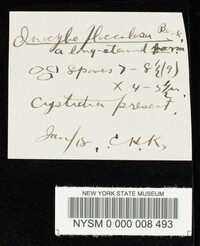 Inocybe flocculosa Berk.
a long-stemmed form
Spores 7-8½(9)
X 4-5 µm.
Cystidia present.
Jan/18. C.H.K.
NEW YORK STATE MUSEUM
NYSM 0 000 008 493